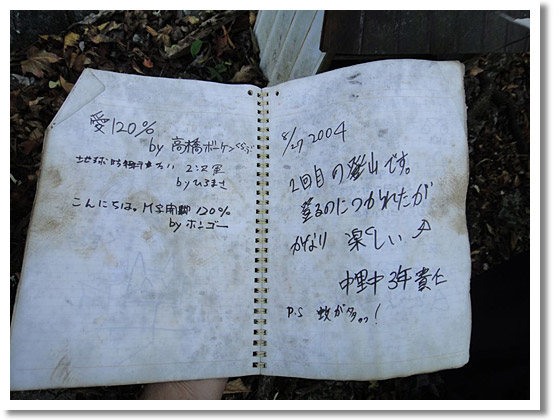 愛120%
by 高橋ボーケン
地球防衛
by ひろまさ
こんにちは。M字開脚 120%
by ボンゴー
8/27 2004
2回目の登山です。
登るのにつかれたが
かなり 楽しい
中里中 3年 貴仁
P.S 蚊が多っ!